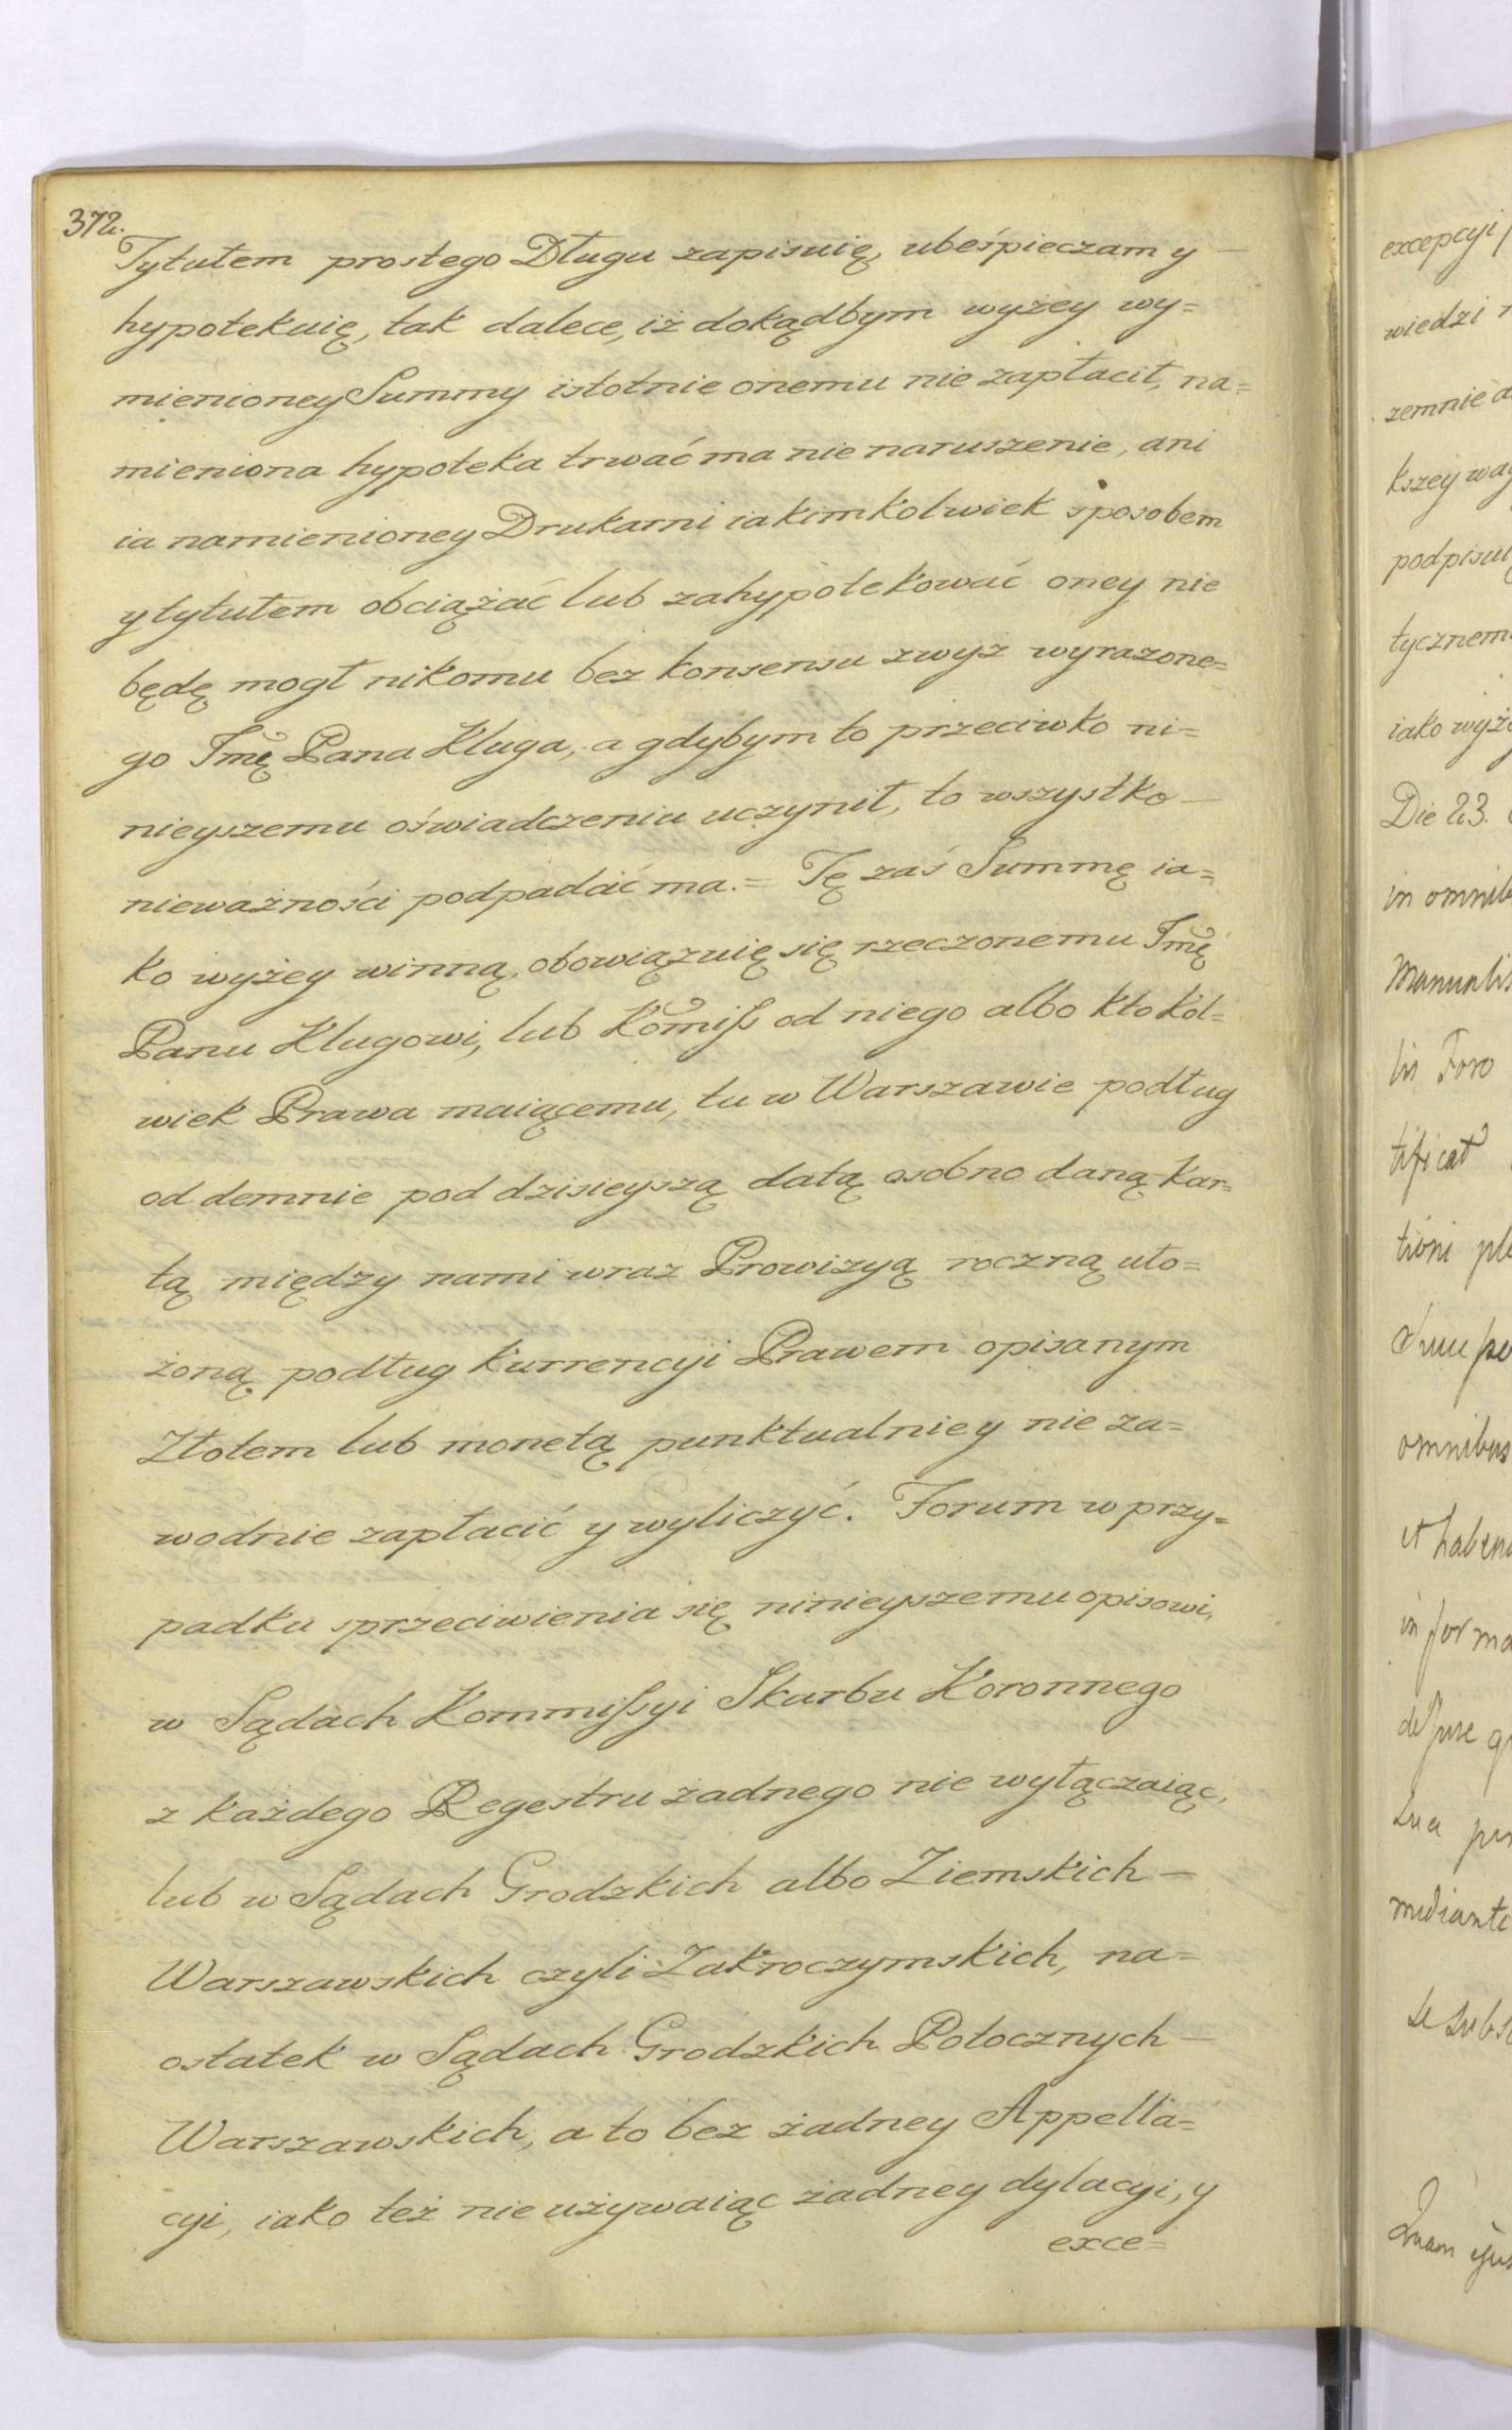 372.
Tytułem prostego Długu zapisuię, ubeśpieczam y —
hypotekuię, tak dalece, iż dokądbym wyżey wy=
mienioney Summy istotnie onemu nie zapłacił, na=
mieniona hypoteka trwać ma nie naruszenie, ani
ia namienioney Drukarni iakimkolwiek sposobem
y tytułem obciążać lub zahypotekować oney nie
będę mogł nikomu bez konsensu zwyż wyrazone=
go Jmę Pana Kluga, a gdybym to przeciwko ni=
nieyszemu oświadczeniu uczynił, to wszystko —
nieważności podpadać ma. = Tę zaś Summę ia=
ko wyżey winną, obowiązuię się rzeczonemu Jmę
Panu Klugowi, lub Komiſs od niego albo ktokol=
wiek Prawa maiącemu, tu w Warszawie podług
od demnie pod dzisieyszą datą osobno daną kar=
tą między nami wraz Prowizyą roczną uło=
żoną podług kurrencyi Prawem opisanym
Złotem lub monetą punktualniey nie za=
wodnie zapłacić y wyliczyć. Forum w przy=
padku sprzeciwienia się ninieyszemu opisowi,
w Sądach Kommiſsyi Skarbu Koronnego
z każdego Regestru żadnego nie wyłączaiąc,
lub w Sądach Grodzkich albo Ziemskich —
Warszawskich czyli Zakroczymskich, na=
ostatek w Sądach Grodzkich Potocznych —
Warszawskich, a to bez żadney Appella=
cyi, iako też nie używaiąc żadney dylacyi, y
exce=
excepcyi
wiedzi
zemnie
kszey
podpisu
tycznem
iako
Die 23.
in
lis Foro
tificat
tioni
omnibus
et
in forma
de Jure
sua
mediante
se